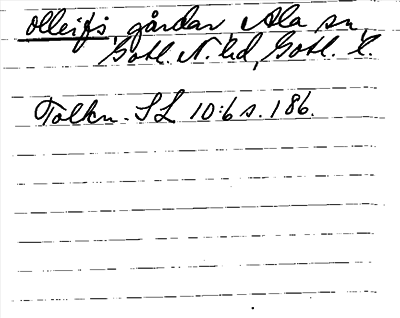 Olleifs, gårdar Ala sn,
Gotl. N. hd, Gotl. l.
Tolkn. SL 10:6 s. 186.